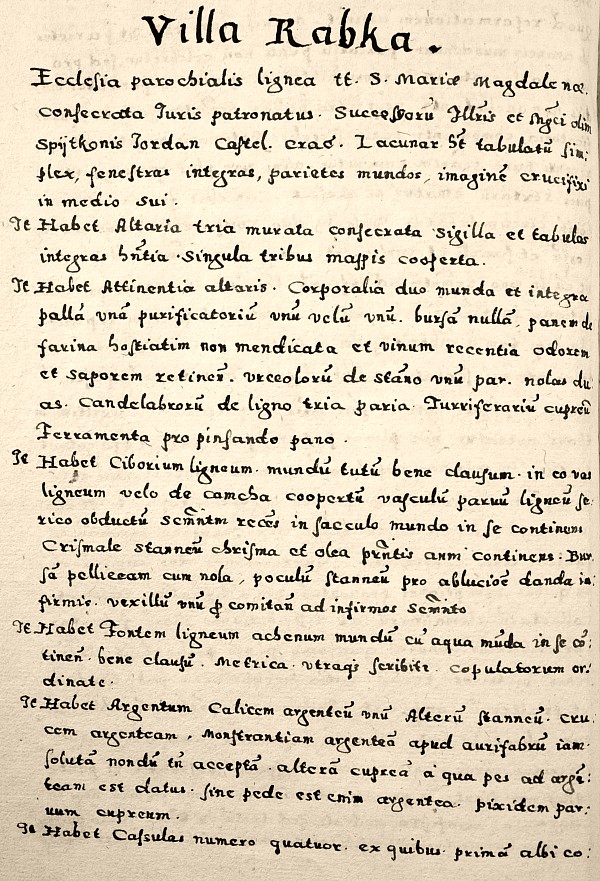 Villa Rabka.
Ecclesia parochialis lignea tt. S. Mariæ Magdalenæ.
Consecrata Juris patronatus. Successorū Illris et Mgci olim
Spytkonis Jordan Castel. crac. Lacunar hēt tabulatū sim:
plex, fenestras integras, parietes mundos, imaginē crucifixi
in medio sui.
Jt Habet Altaria tria murata consecrata sigilla et tabulas
integras hñtia. Singula tribus mappis cooperta.
Jt Habet Attinentia altaris. Corporalia duo munda et integra
pallā unā purificatoriū unū velū unū. bursā nullā, panem de
farina hostiatim non mendicata et vinum recentia odorem
et saporem retineñ. urceolorū de stāno unū par. nolas du
as. Candelabrorū de ligno tria paria. Turriferariū cupreū
Ferramenta pro pinsando pano.
Jt Habet Ciborium ligneum. mundū tutū bene clausum. in eo vas
ligneum velo de camcha coopertū vasculū parvū ligneū se
rico obductū Scm̄ntm recēs in sacculo mundo in se continens
Crismale stanneū chrisma et olea prn̄tis anni continens. Bur
sā pelliceam cum nola, poculū stanneū pro ablucioē danda in:
firmis. vexillū unū ꝓ comitañ ad infirmos Scm̄nto
Jt Habet Fontem ligneum achenum mundū cū aqua mūda in se cō:
tineñ. bene clausū. Metrica. utraqȝ scribitr. copulatorum or:
dinate.
Jt Habet Argentum Calicem argenteū unū Alterū stanneū. cru
cem argenteam, Monstrantiam argenteā apud aurifabrū iam
solutā nondū tñ acceptā. alterā cupreā a qua pes ad argē:
team est datus. sine pede est enim argentea. pixidem par:
uum cupreum.
Jt Habet Casulas numero quatuor. ex quibus primā albi co: